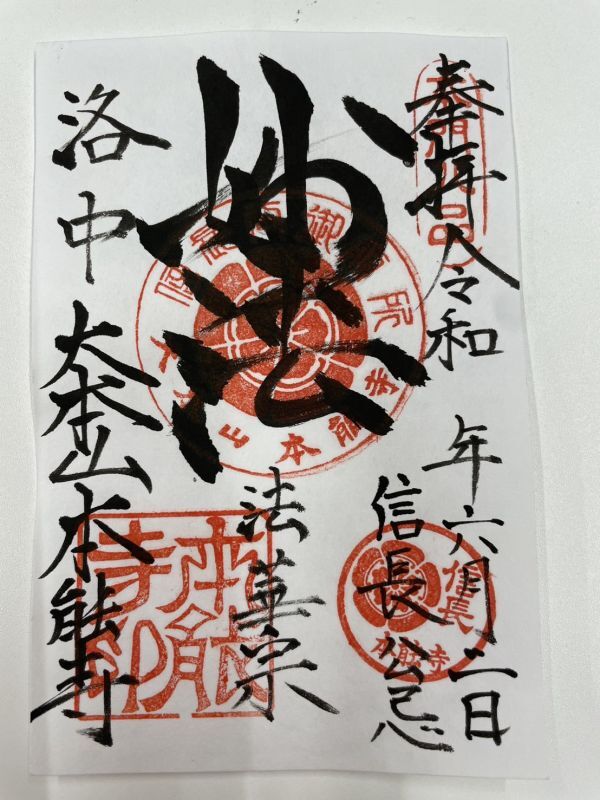 奉拝 令和 年六月二日
信長公忌
信長
本能寺
妙法
信長公御廟所
大本山本能寺
法華宗
洛中 大本山本能寺
本能寺印